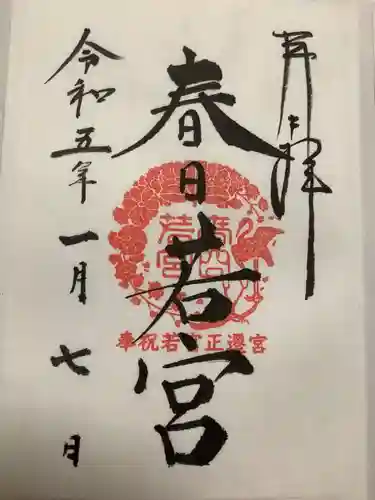 奉拝
春日若宮
奉祝若宮正遷宮
令和五年一月七日